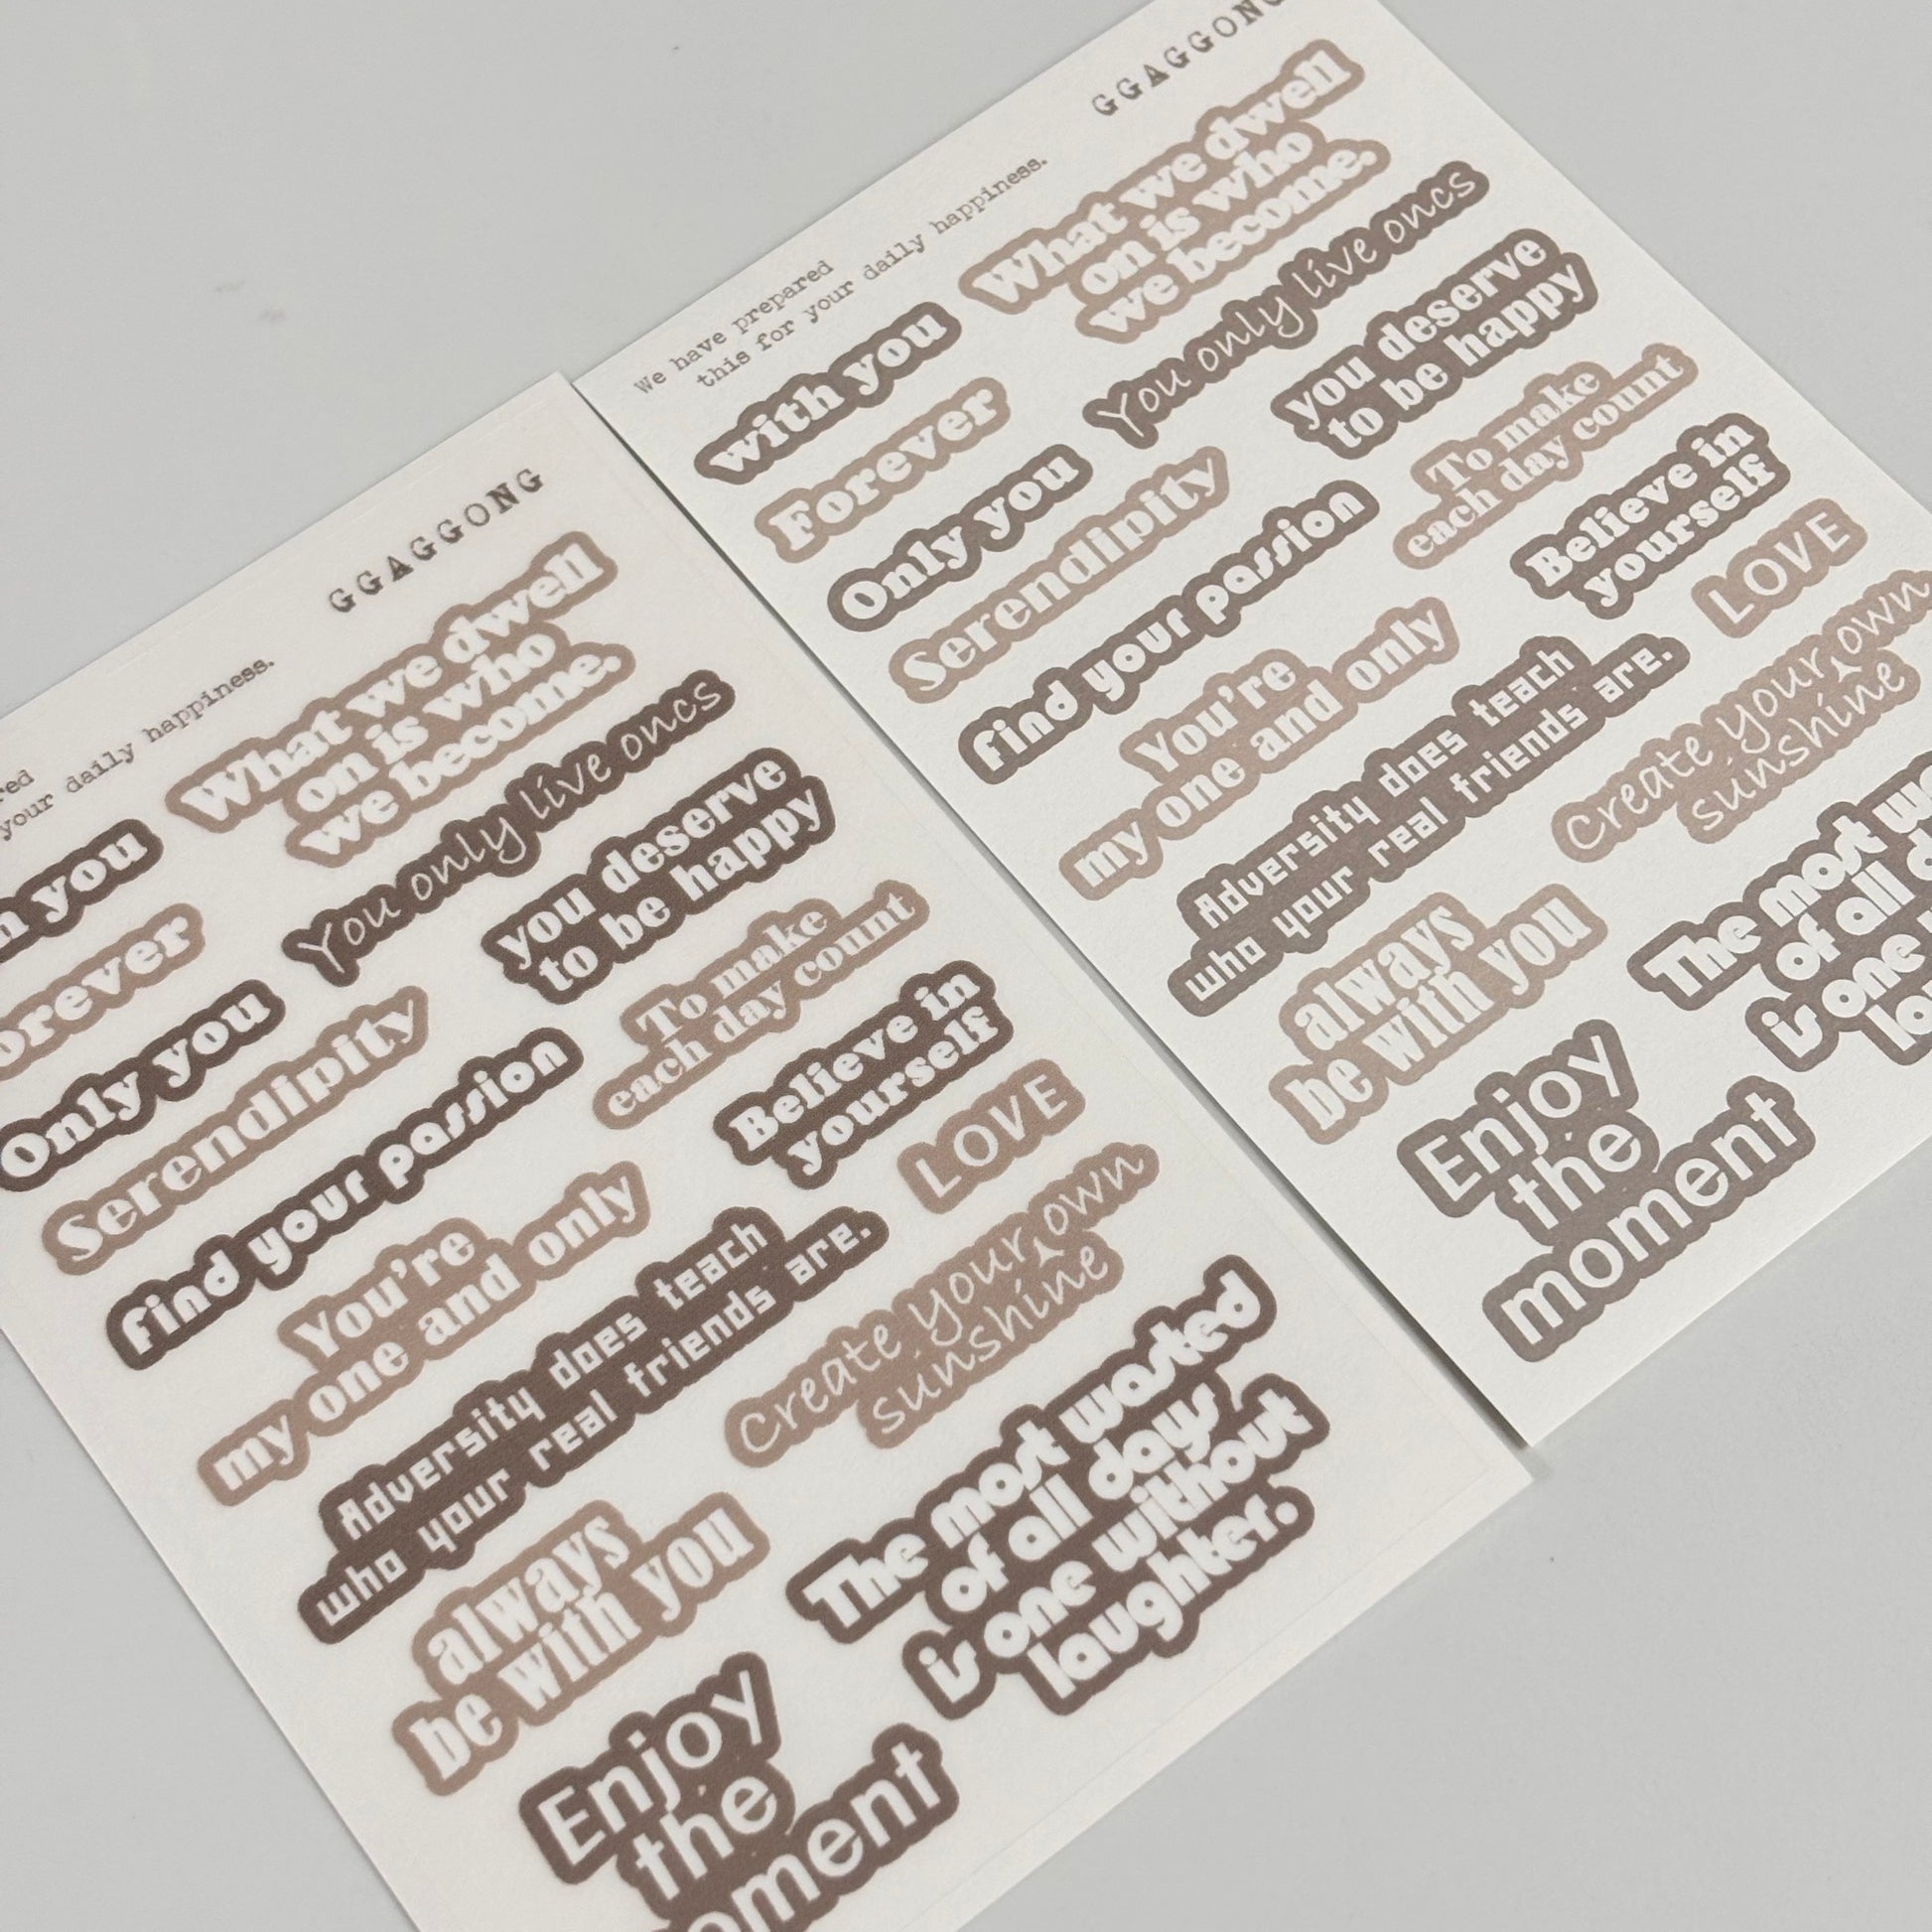 GGAGGONG
your daily happiness.
you
What we dwell
on is who
we become.
You only live oncs
you deserve
to be happy
Only you
Serendipity
To make
each day count
find your passion
Believe in
yourself
LOVE
You're
my one and only
Adversity does teach
who your real friends are.
Create your own
sunshine
always
be with you
The most wasted
of all days
is one without
laughter.
Enjoy
the
GGAGGONG
We have prepared
this for your daily happiness.
with you
What we dwell
on is who
we become.
Forever
You only live oncs
you deserve
to be happy
Only you
Serendipity
To make
each day count
find your passion
Believe in
yourself
LOVE
You're
my one and only
Adversity does teach
who your real friends are.
Create your own
sunshine
always
be with you
The most
of all
is one
Enjoy
the
moment